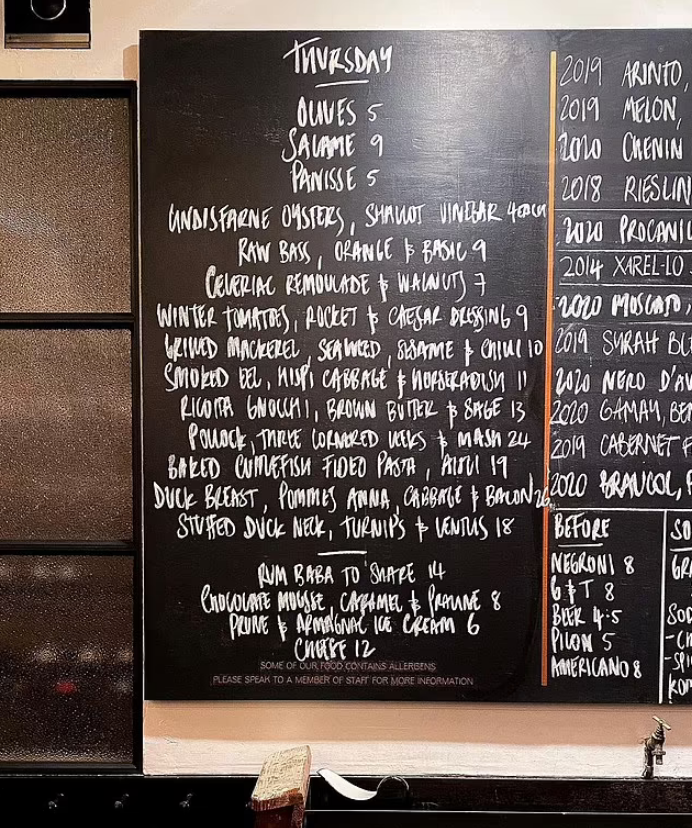 THURSDAY
OLIVES 5
SALAME 9
PANISSE 5
LINDISFARNE OYSTERS, SHALLOT VINEGAR 4 EACH
RAW BASS, ORANGE & BASIL 9
CELERIAC REMOULADE & WALNUTS 7
WINTER TOMATOES, ROCKET & CAESAR DRESSING 9
GRILLED MACKEREL, SEAWEED, SESAME & CHILLI 10
SMOKED EEL, HISPI CABBAGE & HORSERADISH 11
RICOTTA GNOCCHI, BROWN BUTTER & SAGE 13
POLLOCK, THREE CORNERED LEEKS & MASH 24
BAKED CUTTLEFISH FIDEO PASTA, AIOLI 19
DUCK BREAST, POMMES ANNA, CABBAGE & BACON 26
STUFFED DUCK NECK, TURNIPS & LENTILS 18
RUM BABA TO SHARE 14
CHOCOLATE MOUSSE, CARAMEL & PRALINE 8
PRUNE & ARMAGNAC ICE CREAM 6
CHEESE 12
SOME OF OUR FOOD CONTAINS ALLERGENS
PLEASE SPEAK TO A MEMBER OF STAFF FOR MORE INFORMATION
2019 ARINTO,
2019 MELON,
2020 CHENIN
2018 RIESLIN
2020 PROCANIC
2014 XAREL-LO
2020 MOSCATO,
2019 SYRAH BL
2020 NERO D'AV
2020 GAMAY, BE
2019 CABERNET F
2020 BRAUCOL, F
BEFORE
NEGRONI 8
G & T 8
BEER 4.5
PILON 5
AMERICANO 8
SO
GRA
SOD
-CH
-SPI